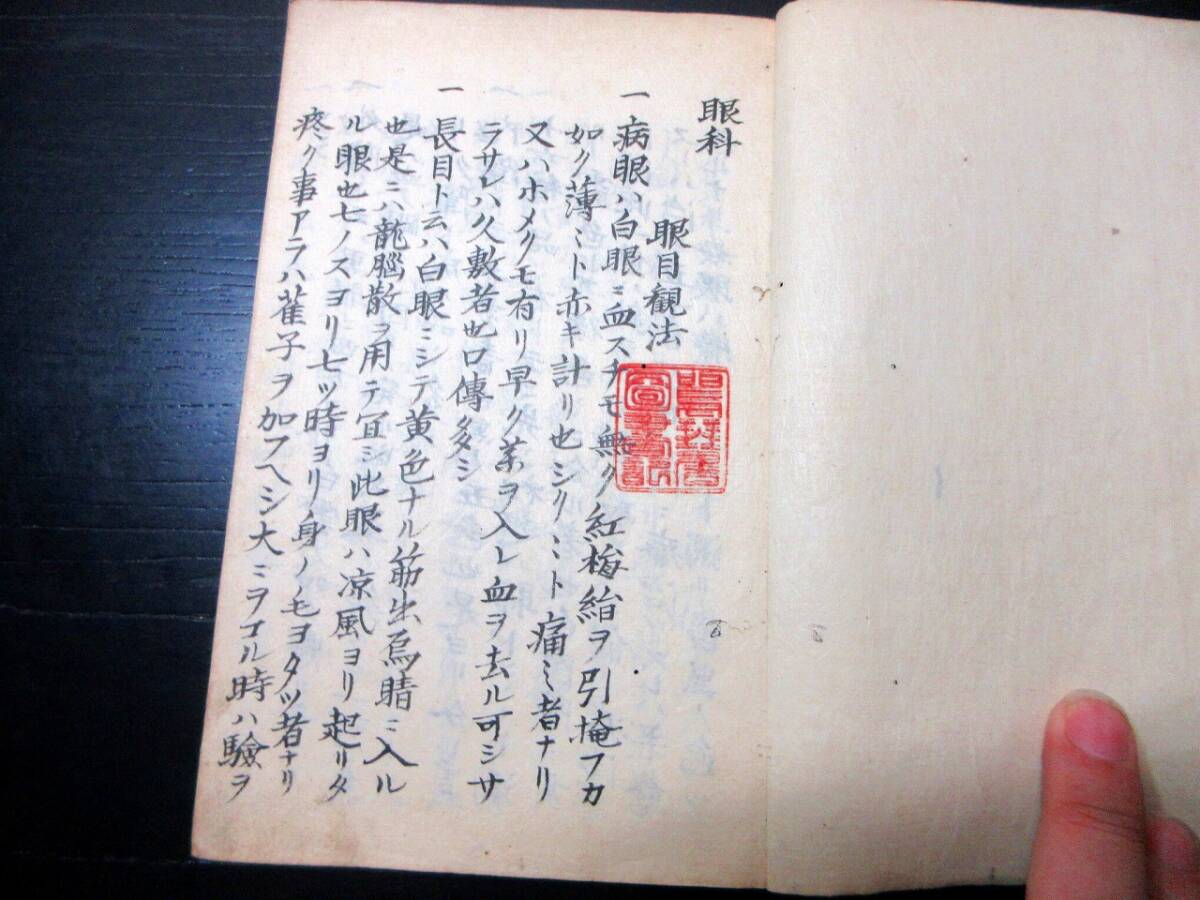 眼科
眼目観法
一病眼ハ白眼ニ血スチモ無ク紅梅絈ヲ引掩フカ
如ク薄ミト赤キ計リ也シクリミト痛ミ者ナリ
又ハホメクモ有リ早ク薬ヲ入レ血ヲ去ル可シサ
ラサレハ久敷者也口傳多シ
一長目ト云ハ白眼ミシテ黄色ナル筋出烏睛ニ入ル
也是ニハ龍腦散ヲ用テ宜シ此眼ハ凉風ヨリ起リタ
ル眼也七ノスヨリ七ッ時ヨリ身ノノモヨタツ者ナリ
疼ク事アラハ雀子ヲ加フヘシ大ニヲコル時ハ驗ヲ